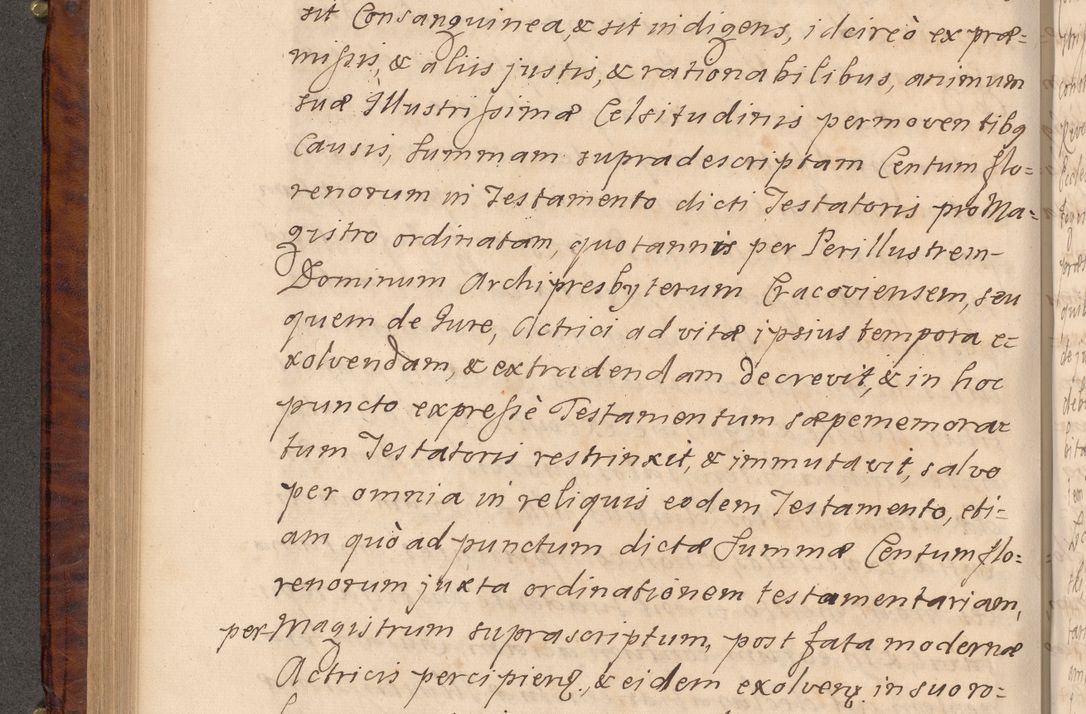 sit Consanguinea, & sit indigens, idcircò ex præ=
missis, & aliis justis, & rationabilibus, animum
suæ Illustrissimæ Celsitudinis permoventibq
Causis, Summam supradescriptam Centum flo=
renorum in Testamento dicti Testatoris pro Ma=
gistro ordinatam, quotannis per Perillustrem
Dominum Archipresbyterum Cracoviensem, seu
quem de Jure, Actrici ad vitæ ipsius tempora e=
xolvendam, & extradendam decrevit, & in hoc
puncto expressè Testamentum sæpememora=
tum Testatoris restrinxit, & immutavit, salvo
per omnia in reliquis eodem Testamento, eti=
am quò ad punctum dictæ Summæ Centum flo=
renorum juxta ordinationem testamentariam,
per Magistrum suprascriptum, post fata modernæ
Actricis percipienq, & eidem exolvenq in suo ro=